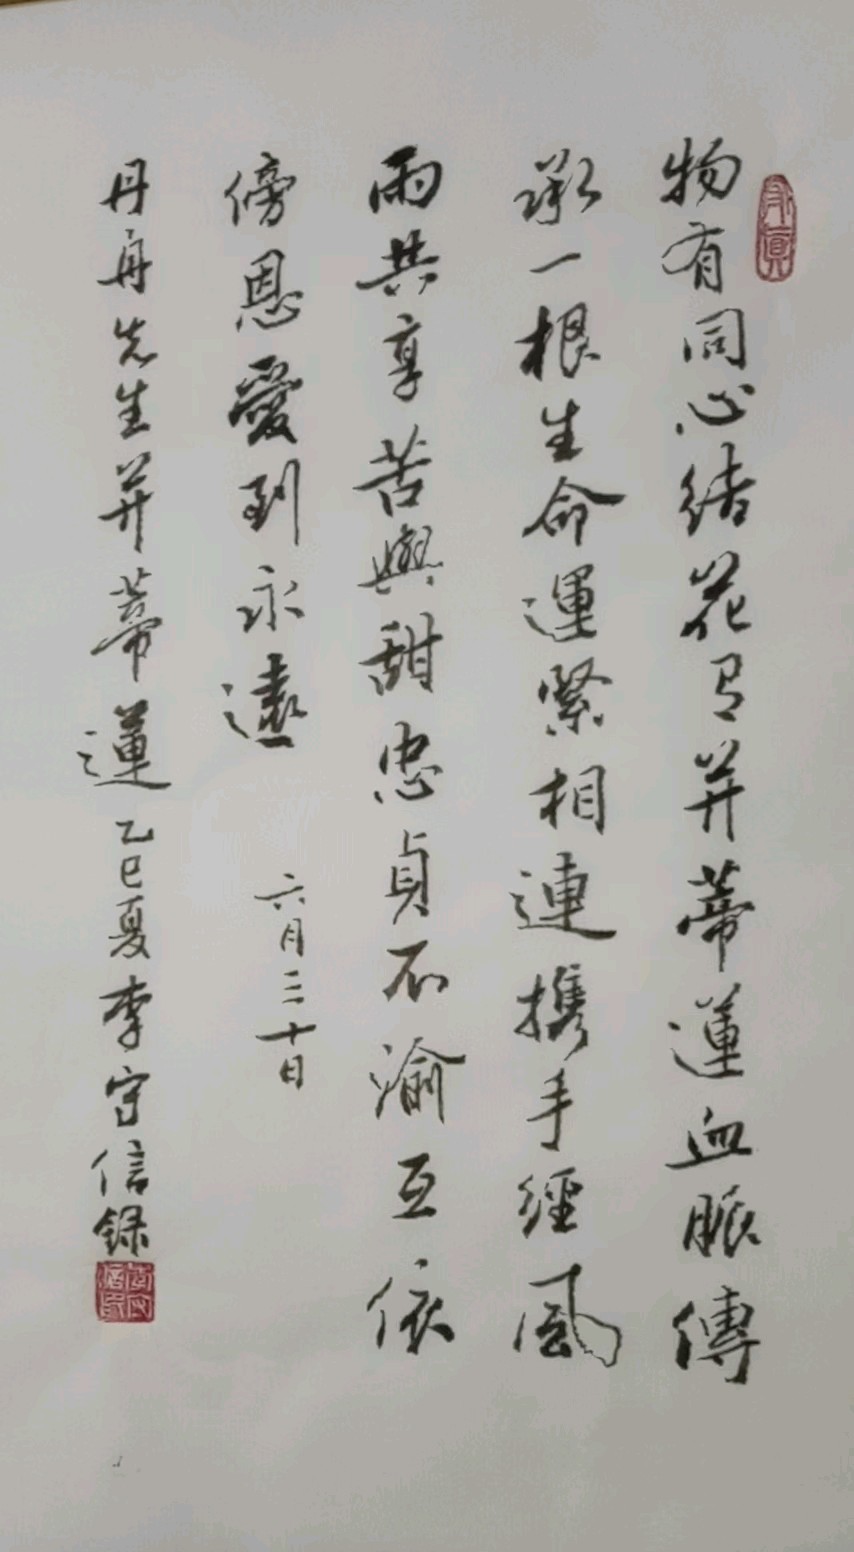 物有同心结花有並蒂蓮血脈傳
承一根生命運緊相連攜手經風
雨共享苦與甜忠貞不渝互依
傍恩愛到永遠 六月三十日
丹舟先生並蒂蓮乙巳夏李守信録